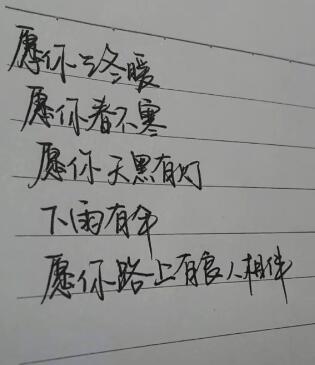 愿你冬暖
愿你春不寒
愿你天黑有灯
下雨有伞
愿你路上有良人相伴